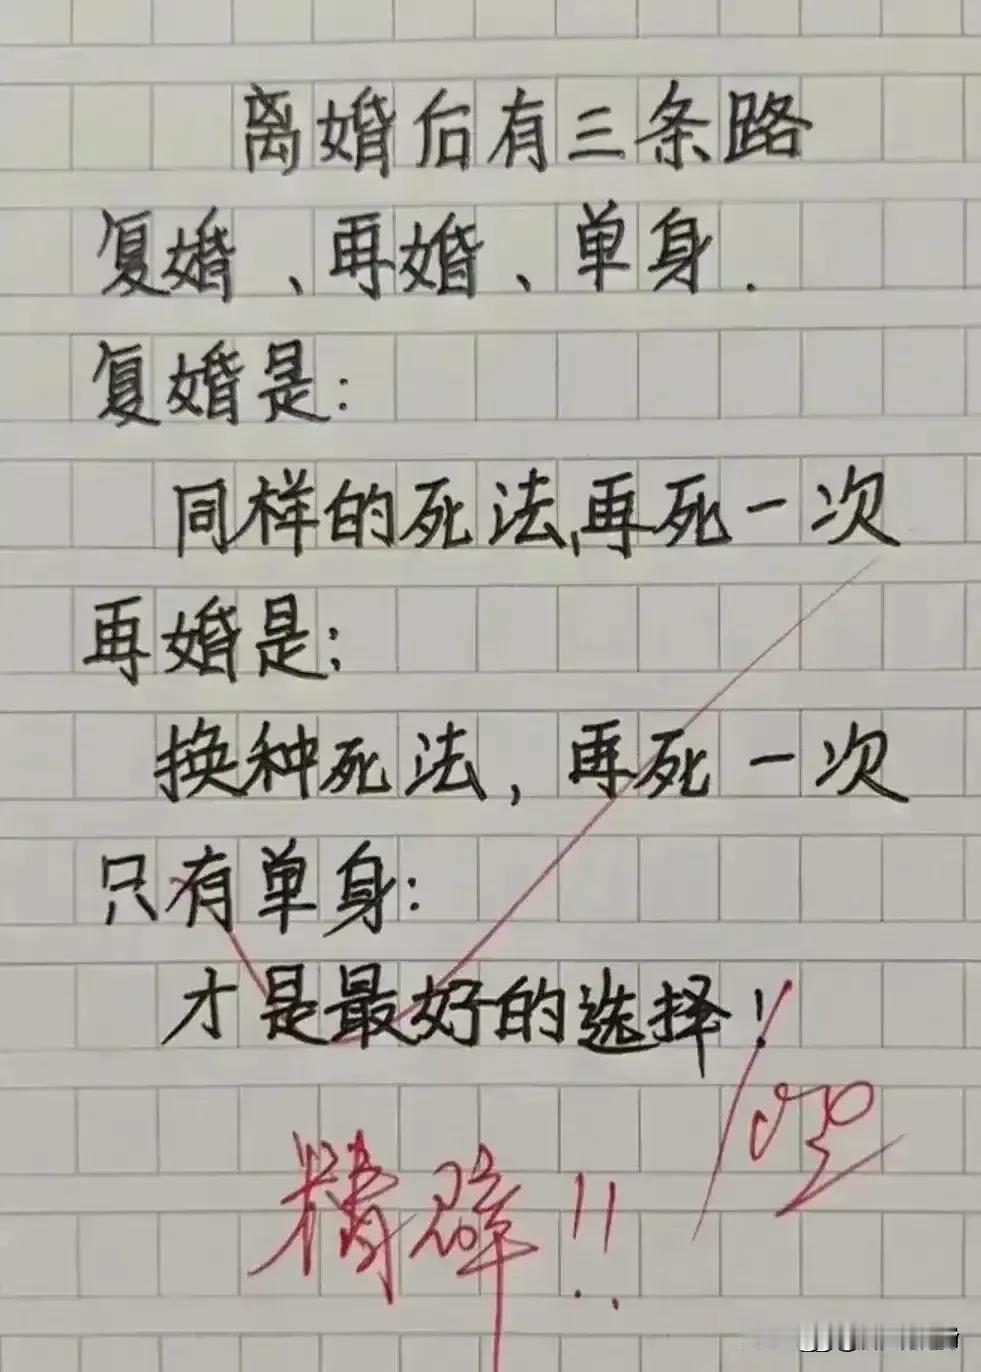 离婚后有三条路
复婚、再婚、单身.
复婚是:
同样的死法,再死一次
再婚是:
换种死法,再死一次
只有单身:
才是最好的选择!
精辟!!